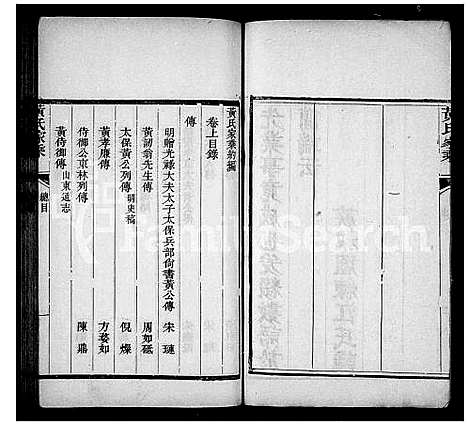 黃氏家乘
黃氏家乘續編
卷上目錄
傳
明贈光祿大夫太子太保兵部尙書黃公傳 宋璉
黃韌翁先生傳 周如砥
太保黃公列傳 明史稿 倪燦
黃孝廉傳 方婺如
侍御公東林列傳 陳鼎
黃侍御傳 山東通志
黃氏家乘 總目
FamilySearch